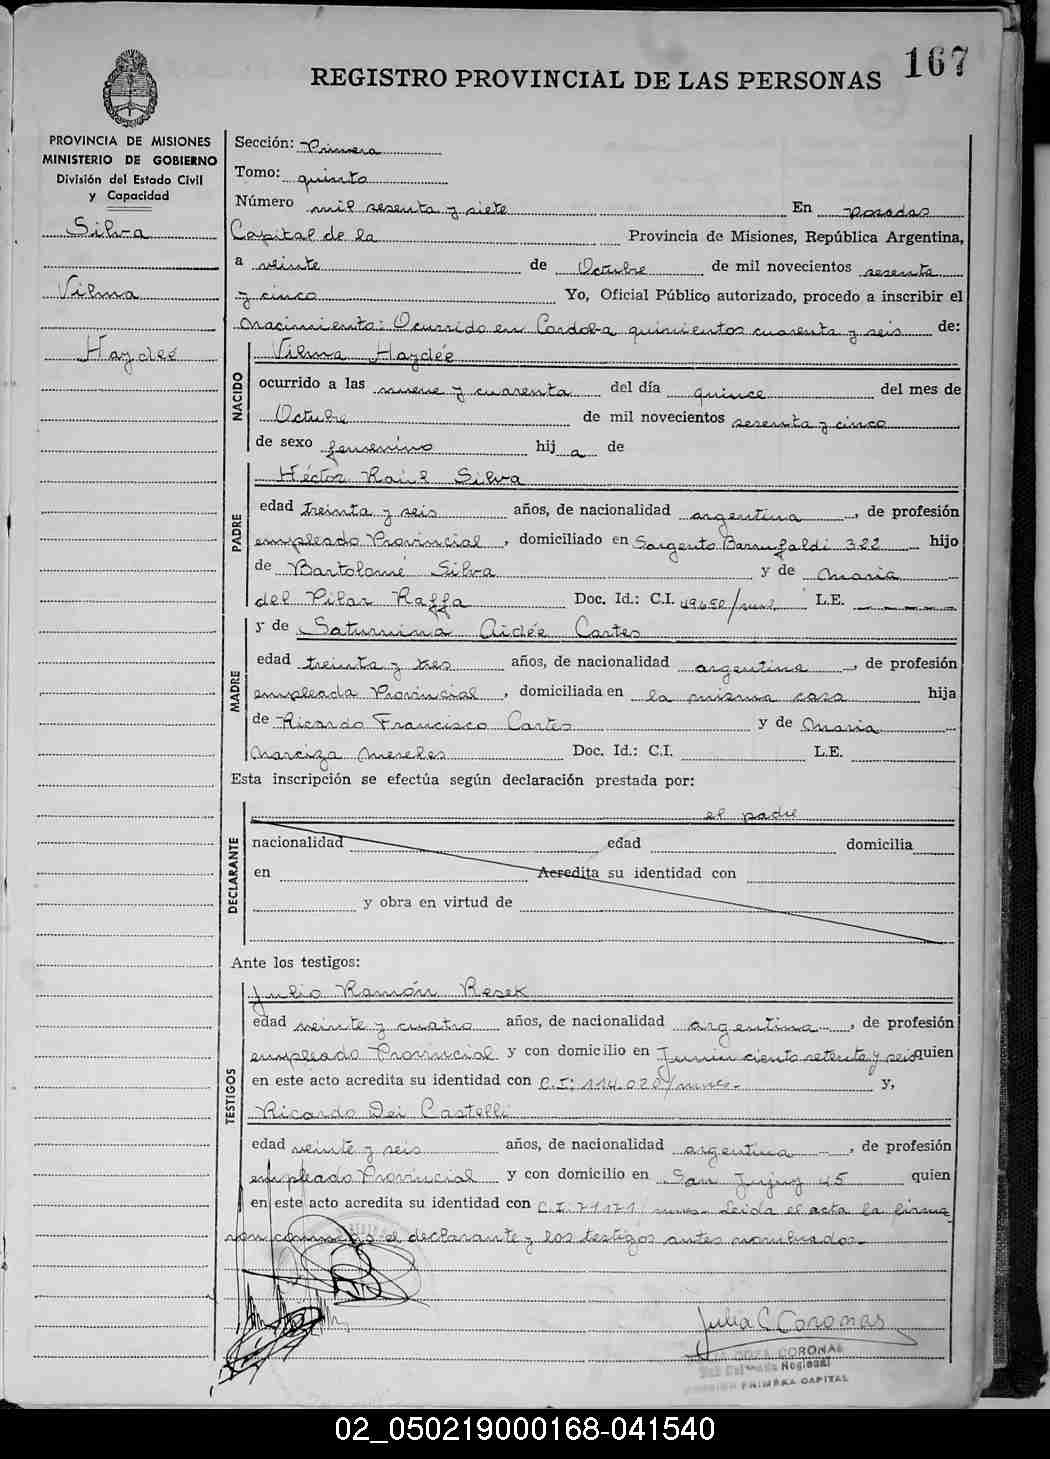 167
REGISTRO PROVINCIAL DE LAS PERSONAS
PROVINCIA DE MISIONES
MINISTERIO DE GOBIERNO
División del Estado Civil
y Capacidad
Silva
Vilma
Haydeé
Sección: Primera
Tomo: quinto
Número mil sesenta y siete En Posadas
Capital de la Provincia de Misiones, República Argentina,
a veinte de Octubre de mil novecientos sesenta
y cinco Yo, Oficial Público autorizado, procedo a inscribir el
nacimiento: Ocurrido en Cordoba quinientos cuarenta y seis de:
NACIDO
Vilma Haydée
ocurrido a las nueve y cuarenta del día quince del mes de
Octubre de mil novecientos sesenta y cinco
de sexo femenino hij a de
PADRE
Héctor Raúl Silva
edad treinta y seis años, de nacionalidad argentina, de profesión
empleado Provincial, domiciliado en Sargento Barrufaldi 322 hijo
de Bartolomé Silva y de Maria
del Pilar Raffa Doc. Id.: C.I. L.E.
MADRE
y de Saturnina Aidée Cartes
edad treinta y tres años, de nacionalidad argentina, de profesión
empleada Provincial, domiciliada en la misma casa hija
de Ricardo Francisco Cartes y de Maria
Narciza Mereles Doc. Id.: C.I. L.E.
Esta inscripción se efectúa según declaración prestada por:
DECLARANTE
el padre
nacionalidad edad domicilia
en Acredita su identidad con
y obra en virtud de
Ante los testigos:
TESTIGOS
Julio Ramón Resek
edad veinte y cuatro años, de nacionalidad argentina, de profesión
empleado Provincial y con domicilio en Junin ciento setenta y seis quien
en este acto acredita su identidad con C.I: 114.020/mnes. y,
Ricardo Dei Castelli
edad veinte y seis años, de nacionalidad argentina, de profesión
empleado Provincial y con domicilio en San Jujuy 45 quien
en este acto acredita su identidad con C.I. 71171/mnes. Leida el acta la firma
ron conmigo el declarante y los testigos antes nombrados.
Julia C Coronas
CORONAS
PRIMERA CAPITAL
02_050219000168-041540